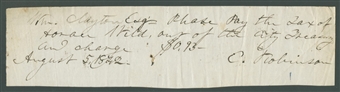 Wm. Clayton Esq. Please pay the tax of
Horace out of the City Treasury
and change $0.93
August 5, 1842 E. Robinson